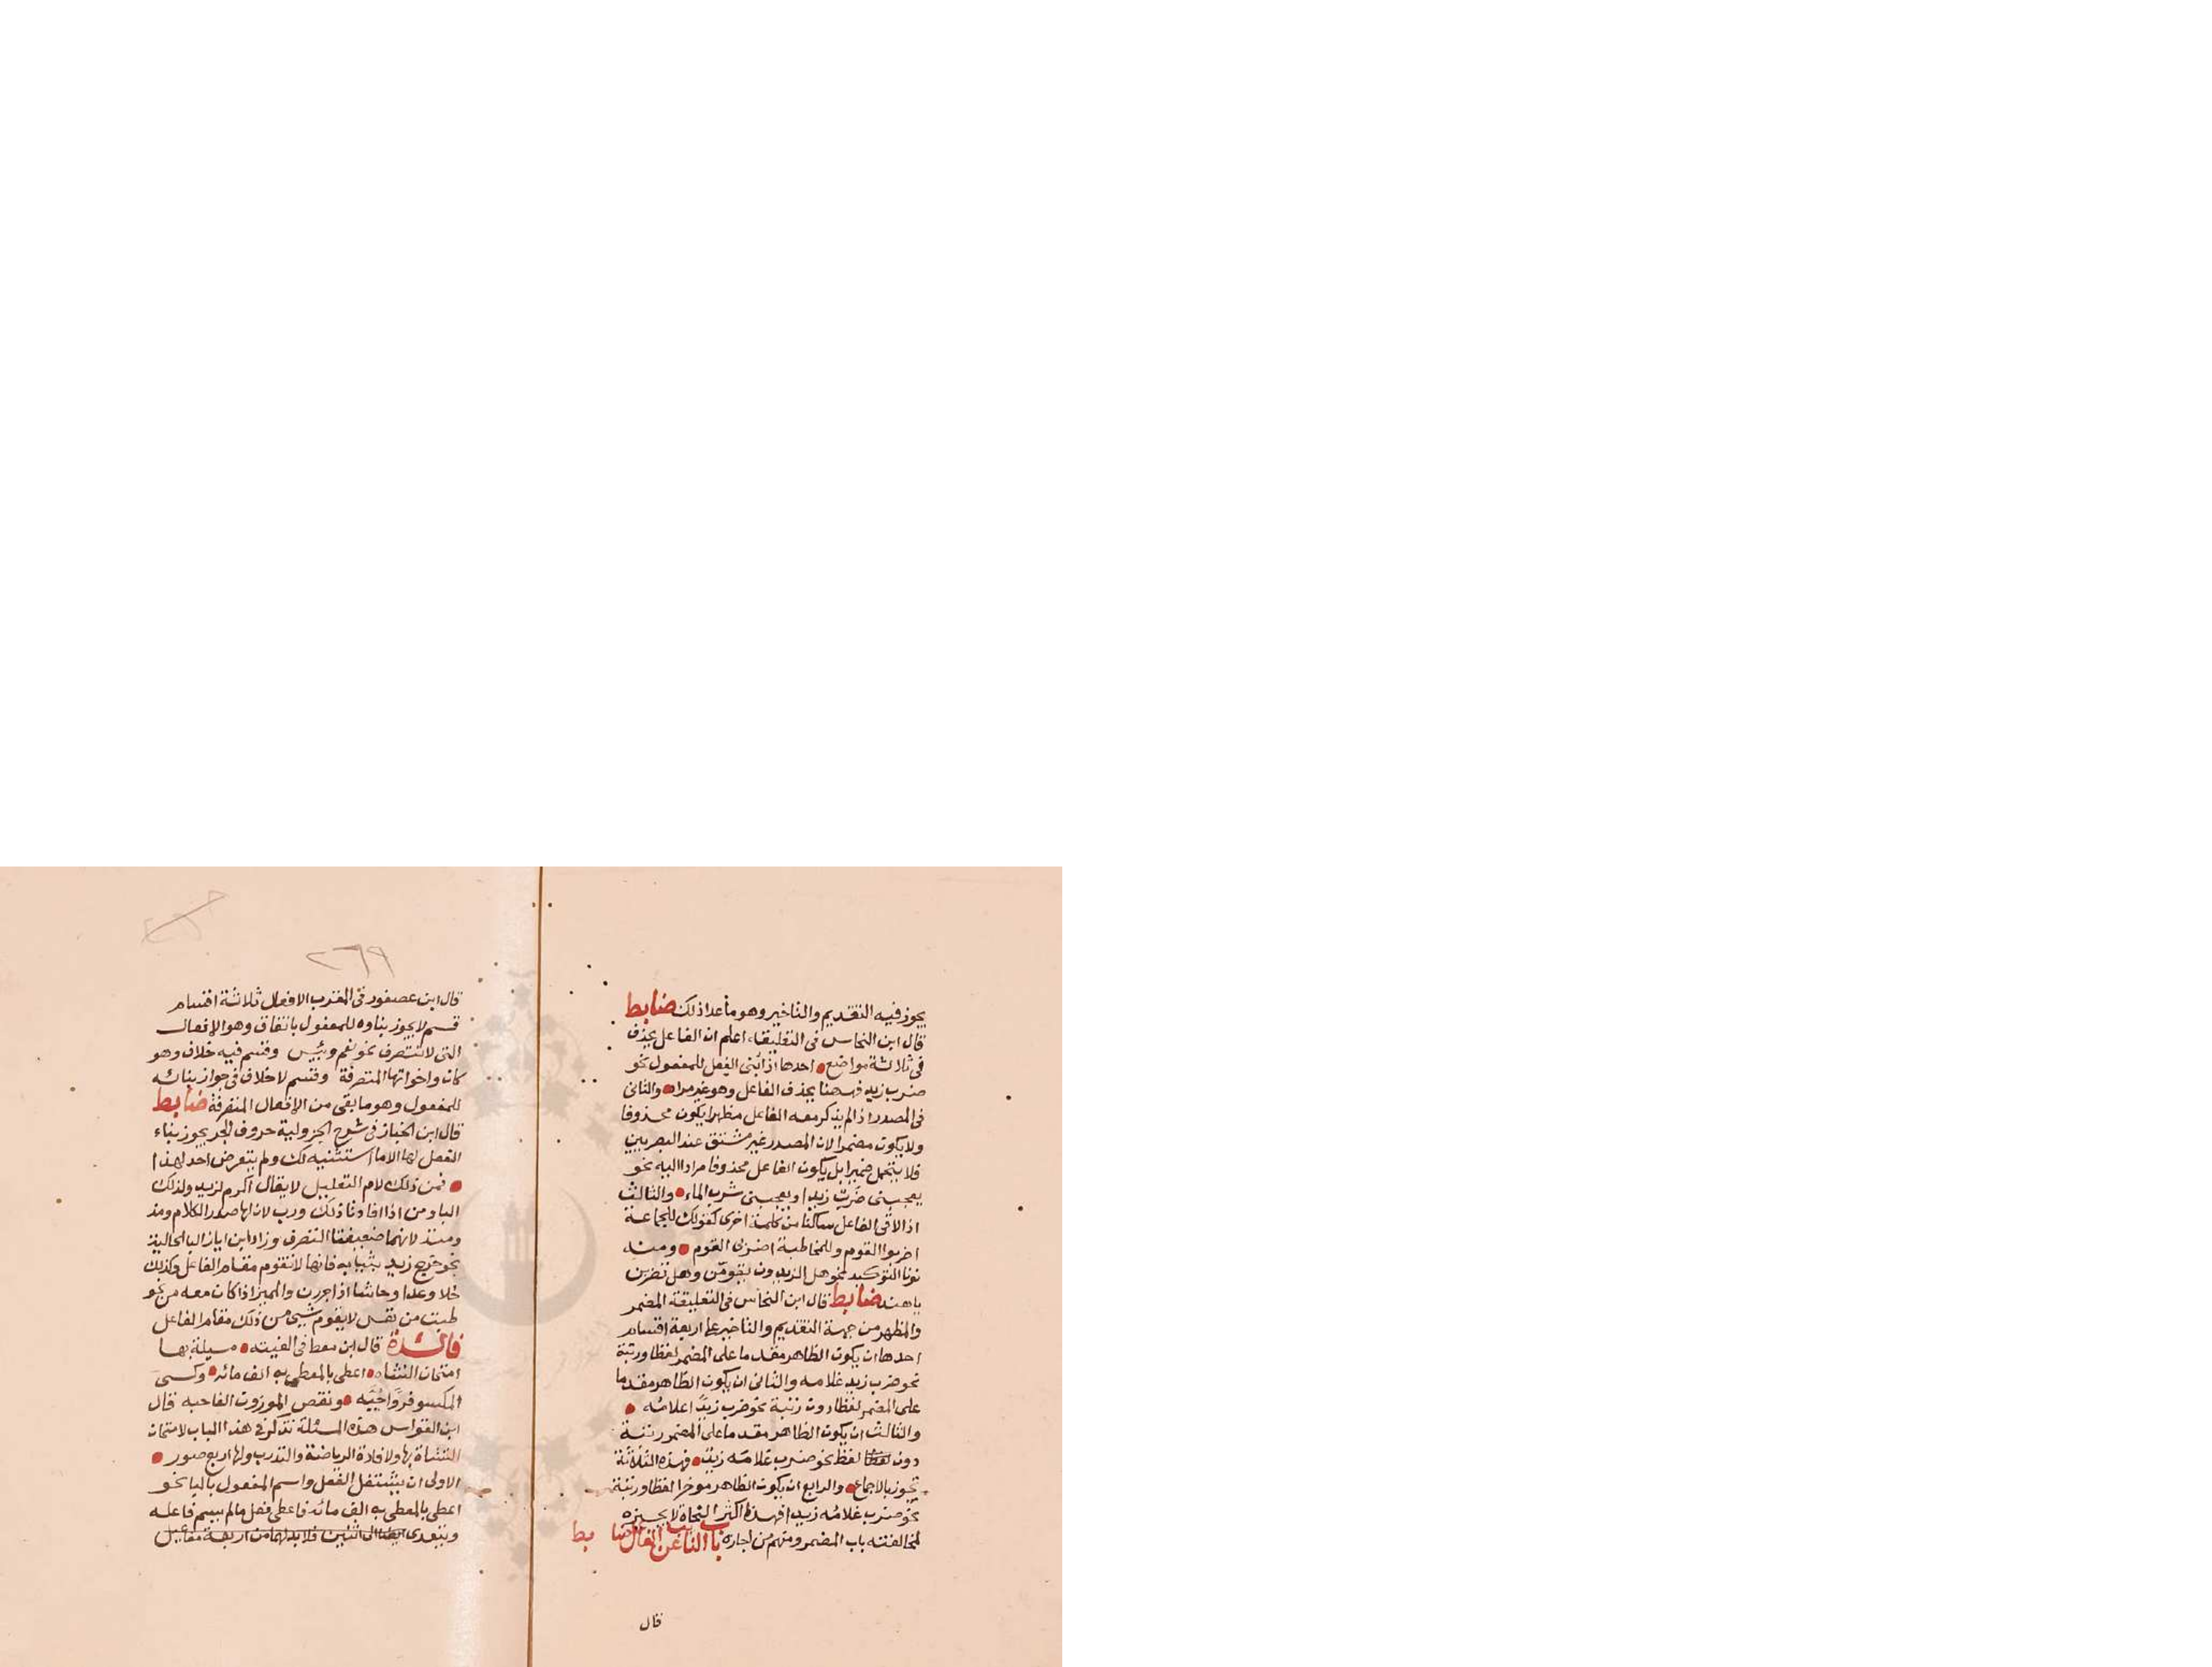 يجوز فيه التقديم والتاخير وهو ماعدا ذلك ضابط
قال ابن النحاس في التعليقة اعلم ان الفاعل يحذف
في ثلاثة مواضع احدها اذا بني الفعل للمفعول نحو
ضرب زيد فهنا يحذف الفاعل وهو غير مراد والثاني
في المصدر اذا لم يذكر معه الفاعل مظهرا يكون محذوفا
ولا يكون مضمرا لان المصدر غير مشتق عند البصريين
فلا يتحمل ضميرا بل يكون الفاعل محذوفا مرادا اليه نحو
يعجبني ضرب زيدا ويعجبني شرب الماء والثالث
اذا لاقى الفاعل ساكنا من كلمة اخرى كقولك للجماعة
اضربوا القوم وللمخاطبة اضربي القوم ومنه
نونا التوكيد نحو هل الزيدون يقومن وهل تضربن
ياهند ضابط قال ابن النحاس في التعليقة المضمر
والمظهر من جهة التقديم والتاخير على اربعة اقسام
احدها ان يكون الظاهر مقدما على المضمر لفظا ورتبة
نحو ضرب زيد غلامه والثاني ان يكون الظاهر مقدما
على المضمر لفظا دون رتبة نحو ضرب زيدا غلامه
والثالث ان يكون الظاهر مقدما على المضمر رتبة
دون لفظ نحو ضرب غلامه زيد فهذه الثلاثة
تجوز بالاجماع والرابع ان يكون الظاهر موخرا لفظا ورتبة
نحو ضرب غلامه زيدا فهذا اكثر النحاة لا يجيزه
لمخالفته باب المضمر ومنهم من اجازه باب النائب عن الفاعل ضابط
قال
٢٦٩
قال ابن عصفور في المقرب الافعال ثلاثة اقسام
قسم لا يجوز بناوه للمفعول باتفاق وهو الافعال
التي لا تتصرف نحو نعم وبئس وقسم فيه خلاف وهو
كان واخواتها المتصرفة وقسم لا خلاف في جواز بنائه
للمفعول وهو ما بقي من الافعال المتصرفة ضابط
قال ابن الخباز في شرح الجزولية حروف الجر يجوز بناء
الفعل لها الا ما استثنيه لك ولم يتعرض احد لهذا
فمن ذلك لام التعليل لا يقال اكرم لزيد ولذلك
البا ومن اذا افادتا ذلك ورب لان لها صدر الكلام ومذ
ومنذ لانهما ضعيفتا التصرف وزاد ابن اياز البا الحالية
نحو خرج زيد بثيابه فانها لا تقوم مقام الفاعل وكذلك
خلا وعدا وحاشا اذا جررن والمميز اذا كان معه من نحو
طبت من نفس لا يقوم شيء من ذلك مقام الفاعل
فائدة قال ابن معط في الفيته مسئلة بها
امتحان النشاه اعطي بالمعطى به الف مائه وكسي
المكسو فروا جبه ونقص الموزون الفا حبه قال
ابن القواس هذه المسئلة تذكر في هذا الباب لامتحان
النشاة بها ولافادة الرياضة والتدرب ولها اربع صور
الاولى ان يشتغل الفعل واسم المفعول بالبا نحو
اعطي بالمعطى به الف مائه فاعطي فعل ما لم يسم فاعله
ويتعدى الى اثنين فلا بد لهما من اربعة مفاعيل